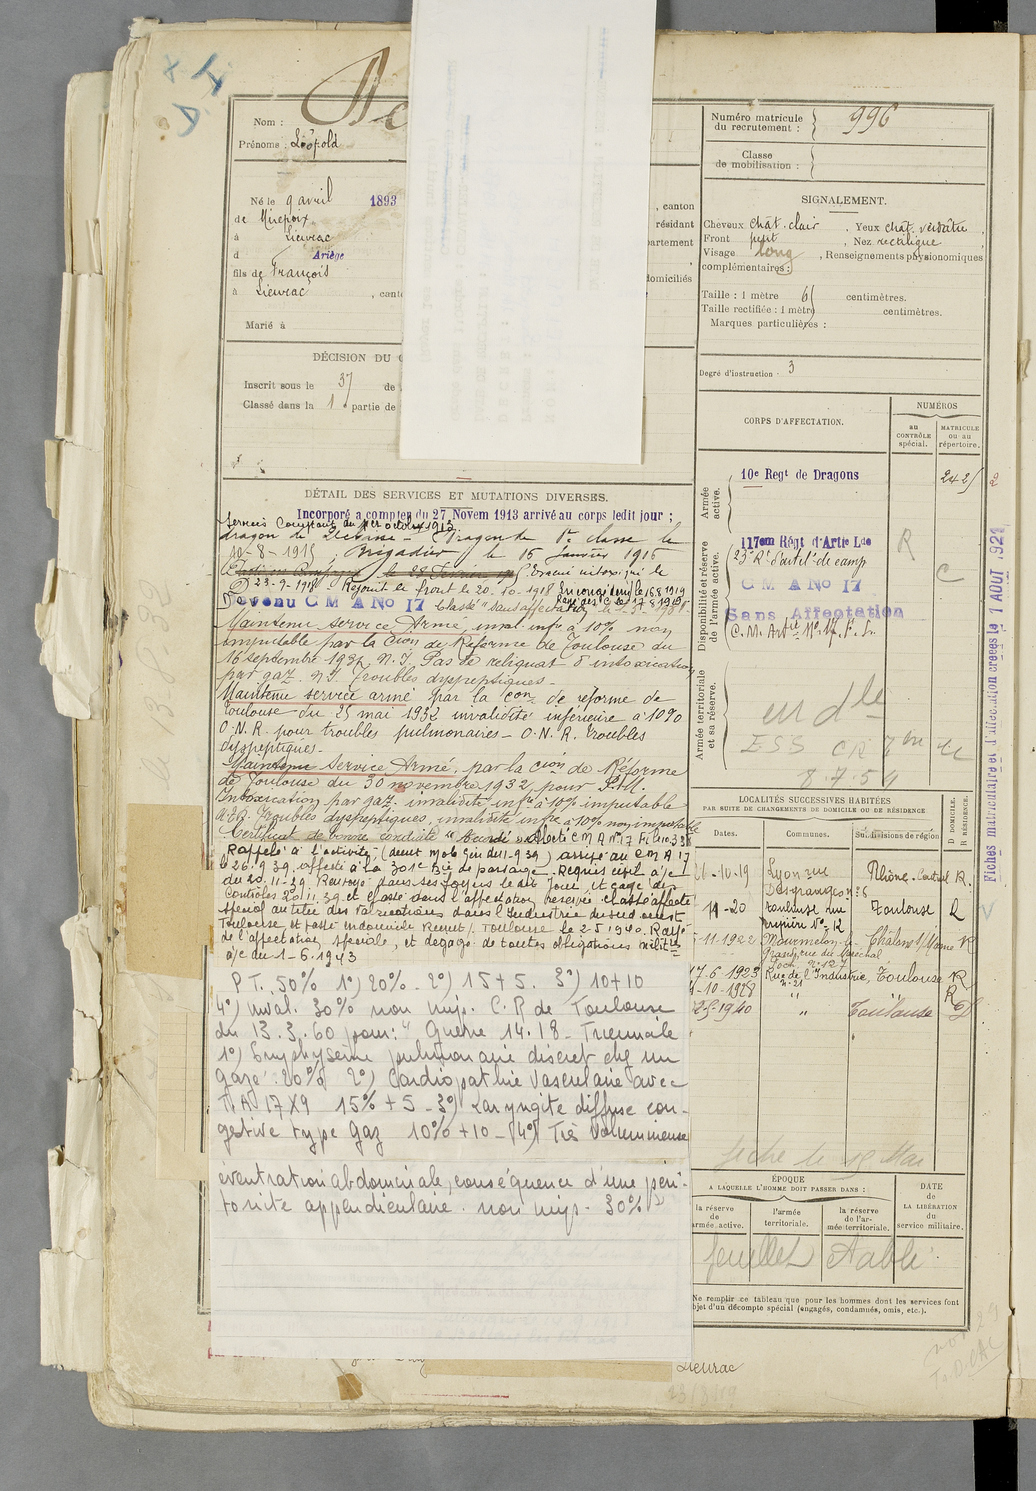 Nom :
Prénoms : Léopold
Né le 9 avril 1893
de Mirepoix
à Lieurac
d Ariège
fils de François
à Lieurac , cant
Marié à
, canton
résidant
domiciliés
DÉCISION DU C
Inscrit sous le 37 de
Classé dans la 1 partie de
Numéro matricule du recrutement : 996
Classe de mobilisation :
SIGNALEMENT.
Cheveux chât. clair . Yeux chât. verdâtre ,
Front petit , Nez rectiligne
Visage long , Renseignements physionomiques
complémentaires :
Taille : 1 mètre 61 centimètres.
Taille rectifiée : 1 mètre centimètres.
Marques particulières :
Degré d'instruction . 3
CORPS D'AFFECTATION.
NUMÉROS
au CONTRÔLE spécial.
MATRICULE ou au répertoire.
Armée active.
10e Regt de Dragons 2425
Disponibilité et réserve de l'armée active.
117em Régt d'Artie Lde
C M A No 17
Sans Affectation
R
C
Armée territoriale et sa réserve.
8.7.54
Fiches matriculaire et d'affectation créées le 1 AOUT 1921
DÉTAIL DES SERVICES ET MUTATIONS DIVERSES.
Incorporé a compter du 27 Novem 1913 arrivé au corps ledit jour ;
Services Comptant du 1er octobre 1913
dragon de 2e classe - Dragon de 1re classe le
10-8-1915 Brigadier le 15 Janvier 1916
23-9-1918 Rejoint le front le 20.10.1918
Devenu C M A No 17 Classé "sans affectation"
Maintenu Service Armé inval. infre à 10% non
imputable par la Cion de Réforme de Toulouse du
16 septembre 1927 N.I. Pas de reliquat d'intoxication
par gaz. N.I. Troubles dyspeptiques -
Maintenu service armé par la Con de réforme de
Toulouse du 25 mai 1932 invalidité inférieure à 10%
O.N.R. pour troubles pulmonaires - O.N.R. troubles
dyspeptiques -
Maintenu Service Armé, par la Cion de Réforme
de Toulouse du 30 novembre 1932, pour P.M.
Intoxication par gaz. invalidité infre à 10% imputable
Troubles dyspeptiques, invalidité infre à 10% non imputable
Certificat de bonne conduite "Accordé" Affecté C M A No 17
Rappelé à l'activité (décret mob. Gén. du 1-9-39) arrivé au C M A 17
le 26.9.39. affecté à la 301e Bie de parcage. Requis civil a/c
du 20.11.39. Renvoyé dans ses foyers le dit jour et rayé des
Contrôles 20.11.39. et classé dans l'affectation réservée classe affecté
spécial au titre des Fabrications dans l'Industrie du sud ouest
Toulouse et passe Indemnité Recrut. Toulouse le 2-5-1940. Rayé
de l'affectation spéciale, et dégagé de toutes obligations militres
a/c du 1-6-1943
P.T. 50% 1°) 20% - 2°) 15+5. 3°) 10+10
4°) inval. 30% non imp. C.R de Toulouse
du 13.3.60 pour: "Guerre 14.18 - Triennale
1°) Emphysème pulmonaire discret chz un
gazé : 20% 2°) Cardiopathie vasculaire avec
T.A 17X9 15% + 5 - 3°) Laryngite diffuse con-
gestive type gaz 10% + 10 - (4°) Très volumineuse
éventration abdominale, conséquence d'une péri-
tonite appendiculaire. non imp. 30%
LOCALITÉS SUCCESSIVES HABITÉES
PAR SUITE DE CHANGEMENTS DE DOMICILE OU DE RÉSIDENCE
Dates. Communes. Subdivisions de région
D DOMICILE. R RÉSIDENCE.
-10-19 Lyon rue Desgranges n° 6 Rhône. Central R.
-20 Toulouse rue Toulouse R
-11-1922 Mourmelon-le-Grand, rue du Maréchal Foch n° 127 Châlons s/Marne R
7.6 1923 Rue de l'Industrie, n. 21 Toulouse R
-10-1928 " " R
2-5-1940 " Toulouse D
ÉPOQUE
A LAQUELLE L'HOMME DOIT PASSER DANS :
la réserve de armée active.
l'armée territoriale.
la réserve de l'armée territoriale.
DATE DE LA LIBÉRATION du service militaire.
feuillet établi
Ne remplir ce tableau que pour les hommes dont les services font
objet d'un décompte spécial (engagés, condamnés, omis, etc.).
Lieurac